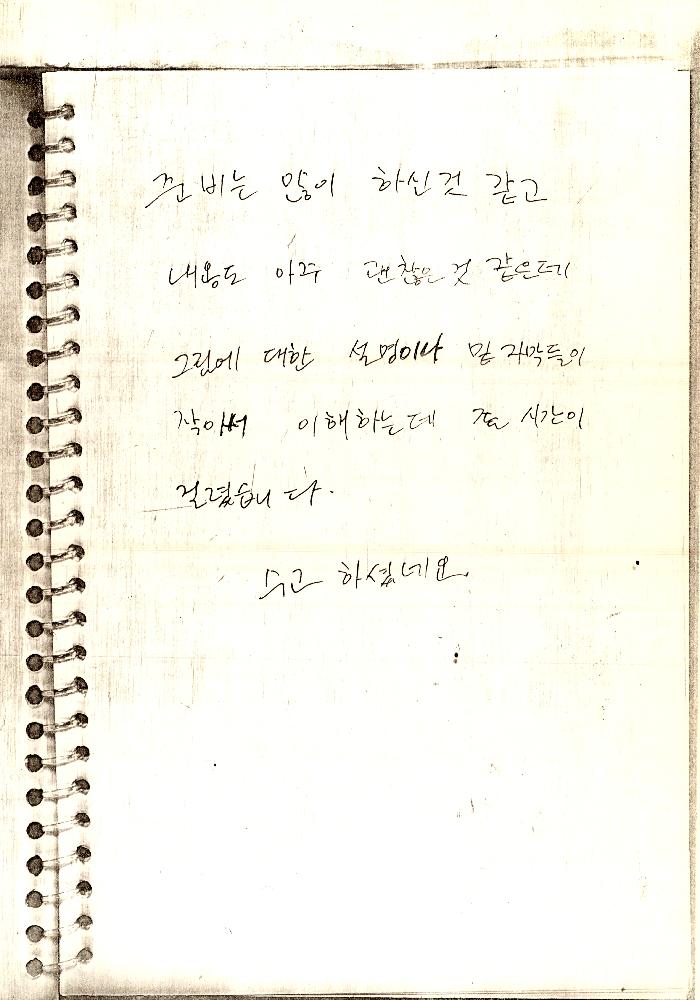 준비는 많이 하신것 같고
내용도 아주 괜찮은것 같은데
그림에 대한 설명이나 밑 자막들이
작아서 이해하는데 좀 시간이
걸렸습니다.
수고 하셨네요.